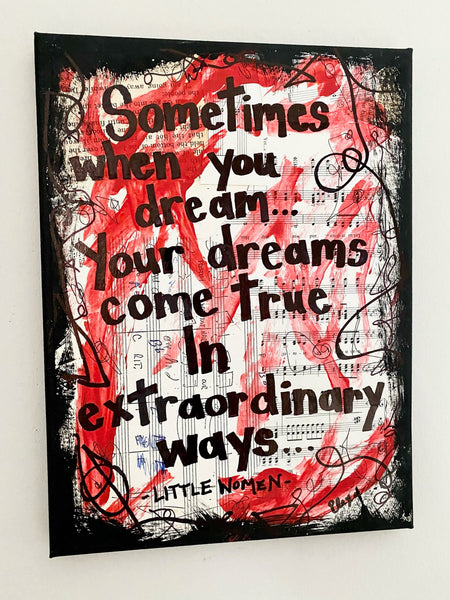 Sometimes
when you
dream...
Your dreams
come true
In
extraordinary
ways...
-LITTLE WOMEN-